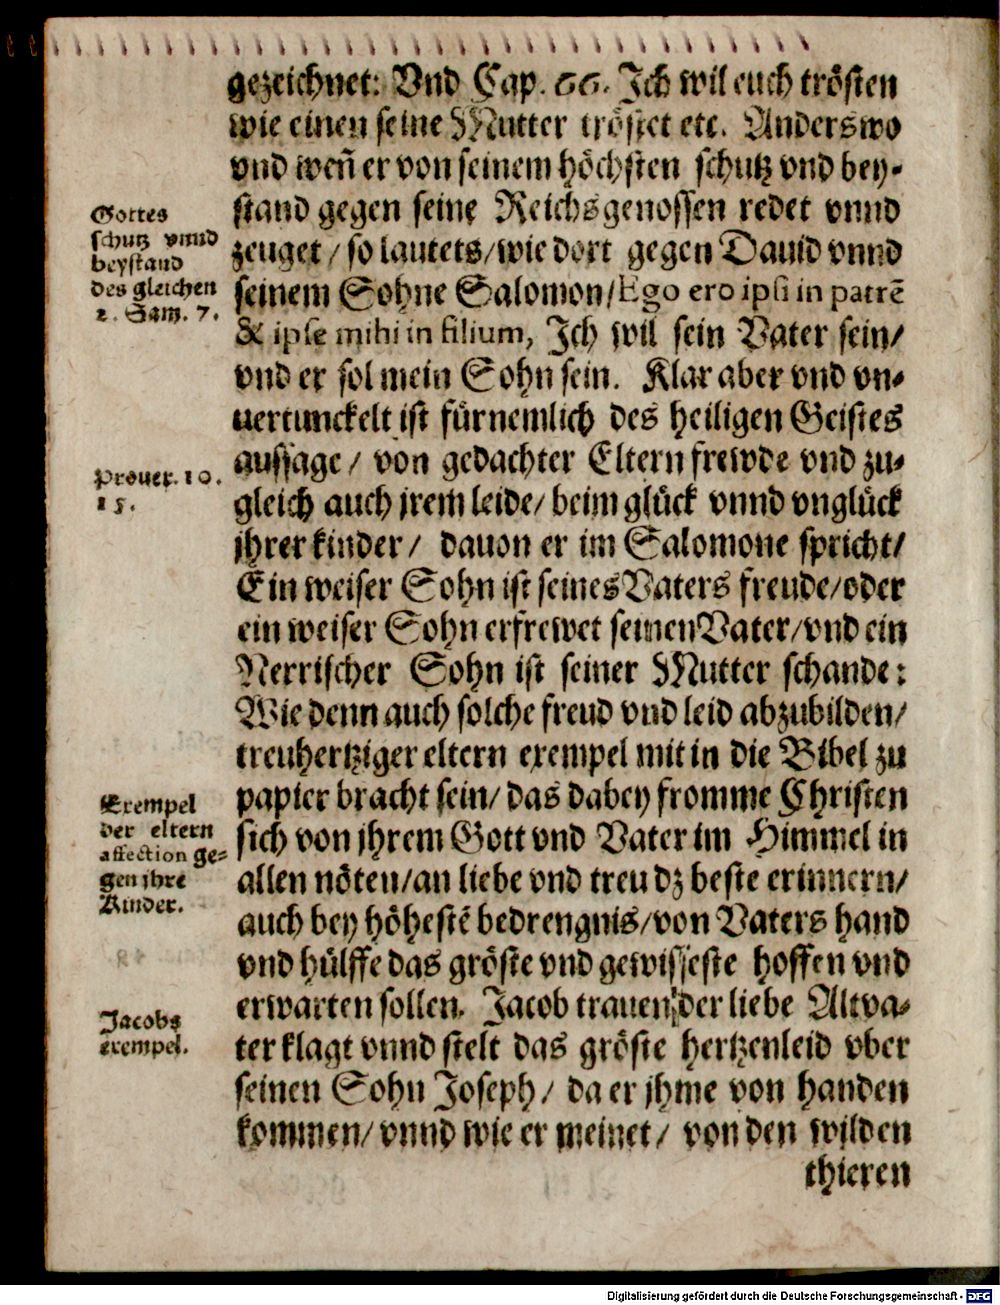 gezeichnet: Vnd Cap. 66. Ich wil euch trösten
wie einen seine Mutter tröstet etc. Anderswo
vnd weñ er von seinem höchsten schutz vnd bey-
stand gegen seine Reichsgenossen redet vnnd
zeuget / so lautets / wie dort gegen Dauid vnnd
seinem Sohne Salomon / Ego ero ipsi in patrē
& ipse mihi in filium, Ich wil sein Vater sein /
vnd er sol mein Sohn sein. Klar aber vnd vn-
uertunckelt ist fürnemlich des heiligen Geistes
aussage / von gedachter Eltern frewde vnd zu-
gleich auch jrem leide / beim glück vnnd vnglück
jhrer kinder / dauon er im Salomone spricht /
Ein weiser Sohn ist seines Vaters freude / oder
ein weiser Sohn erfrewet seinen Vater / vnd ein
Nerrischer Sohn ist seiner Mutter schande:
Wie denn auch solche freud vnd leid abzubilden /
treuhertziger eltern exempel mit in die Bibel zu
papier bracht sein / das dabey fromme Christen
sich von jhrem Gott vnd Vater im Himmel in
allen nöten / an liebe vnd treu dz beste erinnern /
auch bey höhestē bedrengnis / von Vaters hand
vnd hülffe das gröste vnd gewisseste hoffen vnd
erwarten sollen. Jacob trauen der liebe Altva-
ter klagt vnnd stelt das gröste hertzenleid vber
seinen Sohn Joseph / da er jhme von handen
kommen / vnnd wie er meinet / von den wilden
thieren
Gottes
schutz vnnd
beystand
des gleichen
2. Sam. 7.
Prouer. 10.
15.
Exempel
der eltern
affection ge-
gen ihre
Kinder.
Jacobs
exempel.
Digitalisierung gefördert durch die Deutsche Forschungsgemeinschaft - DFG